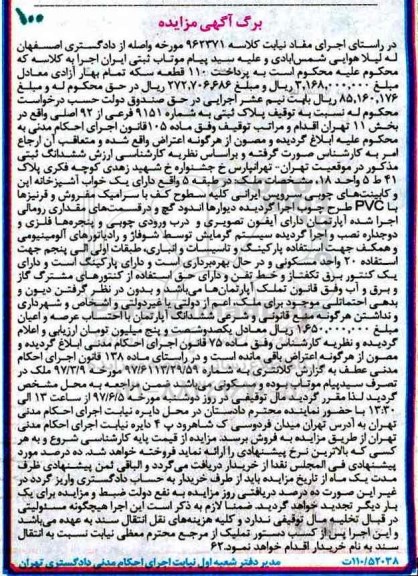 ۱۰۰
برگ آگهی مزایده
در راستای اجرای مفاد نیابت کلاسه ۹۶۲۳۷۱ مورخه واصله از دادگستری اصفهان
له لیلا هوایی شمس‌آبادی و علیه سید پیام موتاب ثبتی ایران اجرا به کلاسه که
محکوم علیه محکوم است به پرداخت ۱۱۰ قطعه سکه تمام بهار آزادی معادل
مبلغ ۳,۱۶۸,۰۰۰,۰۰۰ ریال و مبلغ ۲۷۲,۷۰۶,۶۸۶ ریال در حق محکوم له و مبلغ
۸۵,۱۶۰,۱۷۶ ریال بابت نیم عشر اجرایی در حق صندوق دولت حسب درخواست
محکوم له نسبت به توقیف پلاک ثبتی به شماره ۹۱۵۱ فرعی از ۹۲ اصلی واقع در
بخش ۱۱ تهران اقدام و مراتب توقیف وفق ماده ۱۰۵ قانون اجرای احکام مدنی به
محکوم علیه ابلاغ گردیده و مصون از هرگونه اعتراض واقع شده و متعاقب آن ارجاع
امر به کارشناس صورت گرفته و براساس نظریه کارشناسی ارزش ششدانگ ثبتی
مذکور در موقعیت تهران- تهرانپارس خ جشنواره خ شهید زهدی کوچه فکری پلاک
۴۱ ط ۵ واحد ۱۸ مشخصات ملک در طبقه ۵ واقع دارای یک خواب آشپزخانه اپن
و کابینت‌های چوبی سرویس ایرانی کلیه سطوح کف با سرامیک مفروش و قرنیزها
با PVC طرح چوب اجرا گردیده دیوارها اندود گچ و در قسمت‌های فضاسازی رومالی
اجرا شده آپارتمان دارای آیفون تصویری و درب ورودی چوبی و پنجره‌ها فلزی و
دوجداره نصب و اجرا گردیده سیستم گرمایش توسط شوفاژ و رادیاتورهای آلومینیومی
و همکف جهت استفاده پارکینگ و تاسیسات و انباری طبقات اول الی پنجم جهت
استفاده ۲۰ واحد مسکونی و در حال بهره‌برداری است و دارای پارکینگ است و دارای
یک کنتور برق تکفاز و خط تلفن و دارای حق استفاده از کنتورهای مشترک گاز
و برق و آب وفق قانون تملک آپارتمان‌ها می‌باشد و بدون در نظر گرفتن دیون و
بدهی احتمالی موجود برای ملک، اعم از دولتی یا غیردولتی و اشخاص و شهرداری
و نداشتن هرگونه منع قانونی و ارزش ششدانگ آپارتمان با احتساب عرصه و اعیان
مبلغ ۱,۶۵۰,۰۰۰,۰۰۰ ریال معادل یکصدوشصت و پنج میلیون تومان ارزیابی و اعلام
گردیده و نظریه کارشناس وفق ماده ۷۵ قانون اجرای احکام مدنی ابلاغ گردیده و
مصون از هرگونه اعتراض باقی مانده است و در راستای ماده ۱۳۸ قانون اجرای احکام
مدنی عطف به گزارش کلانتری به شماره ۹۷۶۱۱۳/۲۹/۵۹ مورخ ۹۷/۳/۹ ملک در
تصرف سیدپیام موتاب بوده و مسکونی می‌باشد ضمن مراجعه به محل مشخص
گردید لذا مقرر گردید مال توقیفی در روز دوشنبه مورخه ۹۷/۶/۵ از ساعت ۱۳ الی
۱۳:۳۰ با حضور نماینده محترم دادستان در محل دایره نیابت اجرای احکام مدنی
تهران به آدرس تهران میدان فردوسی ک شاهرود پ ۴ دایره نیابت اجرای احکام مدنی
تهران از طریق مزایده به فروش برسد. مزایده از قیمت پایه کارشناسی شروع و به هر
کسی که بالاترین نرخ پیشنهادی را ارائه نماید فروخته خواهد شد. ده درصد مورد
پیشنهادی فی المجلس نقدا از خریدار دریافت می‌گردد و الباقی ثمن پیشنهادی ظرف
مدت یک ماه از تاریخ مزایده باید از طرف خریدار به حساب دادگستری واریز گردد در
غیر این صورت ده درصد دریافتی روز مزایده به نفع دولت ضبط و مزایده برای یک
بار دیگر تجدید خواهد گردید. ضمنا لازم به ذکر است این اجرا هیچگونه مسئولیتی
در قبال تخلیه مال توقیفی ندارد و کلیه هزینه‌های نقل انتقال سند به عهده می‌باشد
و این اجرا پس از کسب دستور تملیک از مرجع محترم معطی نیابت نسبت به انتقال
سند به نام خریدار اقدام خواهد نمود.۶۲
۱۱۰/۵۲۰۳۸ت دفتر شعبه اول نیابت اجرای احکام مدنی دادگستری تهران